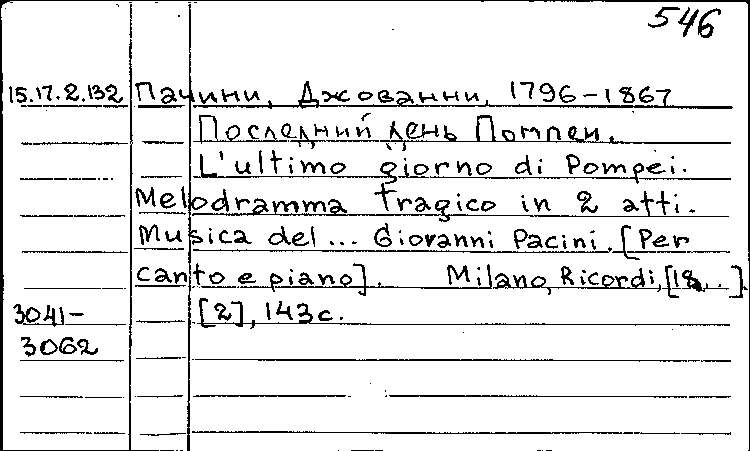 546
15.17.2.132 Пачини, Джованни, 1796-1867
Последний день Помпеи.
L'ultimo giorno di Pompei.
Melodramma tragico in 2 atti.
Musica del... Giovanni Pacini. [Per
canto e piano]. Milano, Ricordi, [18..].
3041- [2], 143 с.
3062